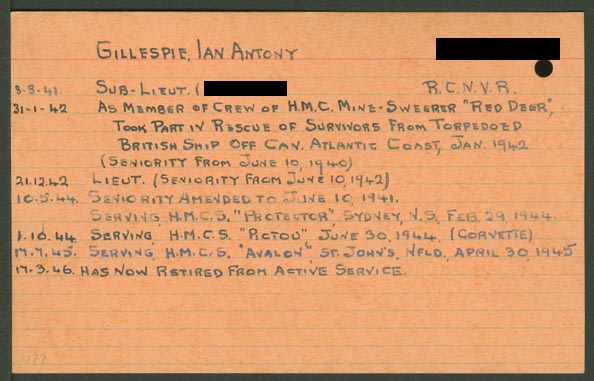 GILLESPIE, IAN ANTONY
3-3-41. SUB-LIEUT. ( R.C.N.V.R.
31-1-42 AS MEMBER OF CREW OF H.M.C. MINE-SWEEPER "RED DEER",
TOOK PART IN RESCUE OF SURVIVORS FROM TORPEDOED
BRITISH SHIP OFF CAN. ATLANTIC COAST, JAN. 1942
(SENIORITY FROM JUNE 10, 1940)
21.12.42 LIEUT. (SENIORITY FROM JUNE 10, 1942)
10.5.44. SENIORITY AMENDED TO JUNE 10, 1941.
SERVING, H.M.C.S. "PROTECTOR" SYDNEY, N.S, FEB. 29, 1944.
1.10.44 SERVING, H.M.C.S. "PICTOU" JUNE 30, 1944, (CORVETTE)
17.7.45. SERVING, H.M.C.S. "AVALON", ST. JOHN'S, NFLD, APRIL 30, 1945
17-3.46. HAS NOW RETIRED FROM ACTIVE SERVICE.